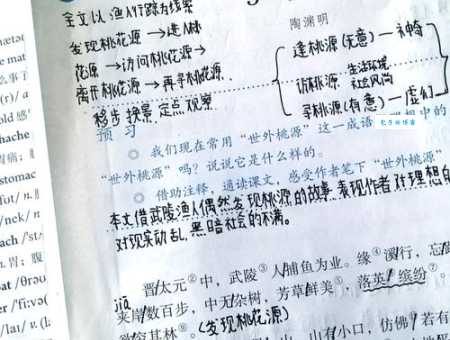 全文以渔人行踪为线索
陶渊明
发现桃花源→进入桃
花源→访问桃花源→
离开桃花源→再寻桃花源
移步换景 定点观察
逢桃源(无意)—神奇
访桃源 生活环境
社会风尚
寻桃源(有意)—虚幻
预习
我们现在常用“世外桃源”这一成语 想中的
“世外桃源”吗？说说它是什么样的。
借助注释，通读课文，感受作者笔下“世外桃源”
本文借武陵渔人偶然发现桃源的故事，表现作者对理想的
对现实动乱，黑暗社会的不满。
晋太元②中，武陵③人捕鱼为业。缘④溪行，忘
jiā
夹岸数百步，中无杂树，芳草鲜美⑤，落英⑥缤纷⑦。
欲穷其林⑨。(发现桃花源)
山，山有小口，仿佛 若有
mat
(r)/ a
old 感
hache
胃痛；
stomac
/nek/ n.
ach /st
胃；腹
/laɪ/ v. (l